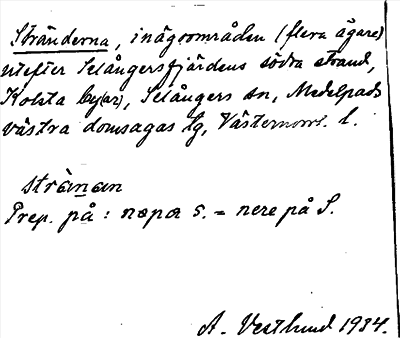 Stränderna, inägoområden (flera ägare)
utefter Selångersfjärdens södra strand,
Kolsta by(ar), Selångers sn, Medelpads
västra domsagas tg, Västernorrl. l.
stränan
Prep. på: næpɑ s. = nere på S.
A. Vestlund 1934.